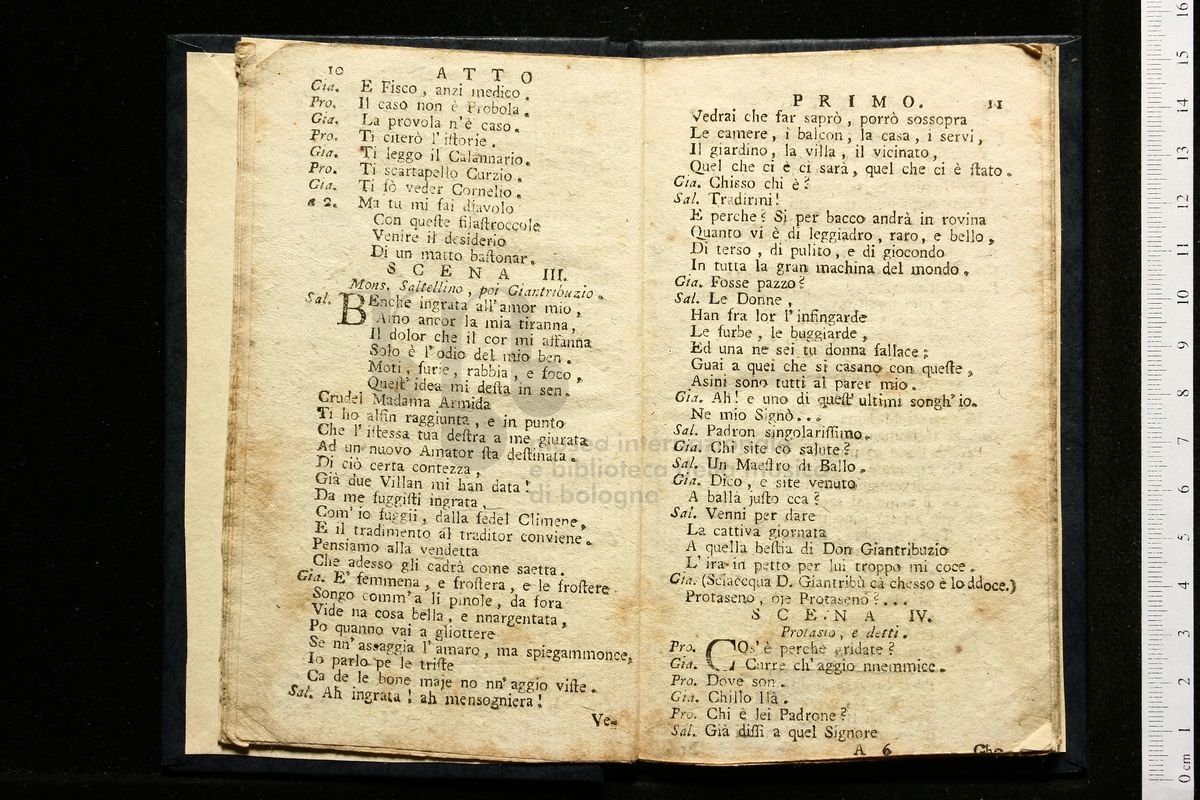 10 ATTO
Gia. E Fisco, anzi medico.
Pro. Il caso non è Probola.
Gia. La provola n'è caso.
Pro. Ti citerò l'iſtorie.
Gia. Ti leggo il Calannario.
Pro. Ti scartapello Curzio.
Gia. Ti fò veder Cornelio.
a 2. Ma tu mi fai diavolo
Con queſte filaſtroccole
Venire il desiderio
Di un matto baſtonar.
SCENA III.
Mons. Saltellino, poi Giantribuzio.
Sal. BEnche ingrata all'amor mio,
Amo ancor la mia tiranna,
Il dolor che il cor mi affanna
Solo è l'odio del mio ben.
Moti, furie, rabbia, e foco,
Queſt'idea mi deſta in sen.
Crudel Madama Armida
Ti ho alfin raggiunta, e in punto
Che l'iſtessa tua deſtra a me giurata
Ad un nuovo Amator ſta deſtinata.
Di ciò certa contezza,
Già due Villan mi han data!
Da me fuggiſti ingrata,
Com'io fuggii, dalla fedel Climene,
E il tradimento al traditor conviene.
Pensiamo alla vendetta
Che adesso gli cadrà come saetta.
Gia. E' femmena, e froſtera, e le froſtere
Songo comm'a li pinole, da fora
Vide na cosa bella, e nnargentata,
Po quanno vai a gliottere
Se nn'assaggia l'amaro, ma spiegammonce,
Io parlo pe le triſte
Ca de le bone maje no nn'aggio viſte.
Sal. Ah ingrata! ah mensogniera!
Ve-
PRIMO. 11
Vedrai che far saprò, porrò sossopra
Le camere, i balcon, la casa, i servi,
Il giardino, la villa, il vicinato,
Quel che ci è ci sarà, quel che ci è ſtato.
Gia. Chisso chi è?
Sal. Tradirmi!
E perche? Si per bacco andrà in rovina
Quanto vi è di leggiadro, raro, e bello,
Di terso, di pulito, e di giocondo
In tutta la gran machina del mondo.
Gia. Fosse pazzo?
Sal. Le Donne,
Han fra lor l'infingarde
Le furbe, le buggiarde,
Ed una ne sei tu donna fallace;
Guai a quei che si casano con queſte,
Asini sono tutti al parer mio.
Gia. Ah! e uno di queſt'ultimi songh'io.
Ne mio Signò...
Sal. Padron singolariſſimo.
Gia. Chi site co salute?
Sal. Un Maeſtro di Ballo.
Gia. Dico, e site venuto
A ballà juſto cca?
Sal. Venni per dare
La cattiva giornata
A quella beſtia di Don Giantribuzio
L'ira in petto per lui troppo mi coce.
Gia. (Sciaccqua D. Giantribù ca chesso è lo ddoce.)
Protaseno, oje Protaseno?...
SCENA IV.
Protasio, e detti.
Pro. COs'è perchè gridate?
Gia. Curre ch'aggio nnemmice.
Pro. Dove son.
Gia. Chillo llà.
Pro. Chi è lei Padrone?
Sal. Già diſſi a quel Signore
A 6 Che
museo internazionale
e biblioteca della musica
di bologna
0 cm 1 2 3 4 5 6 7 8 9 10 11 12 13 14 15 16